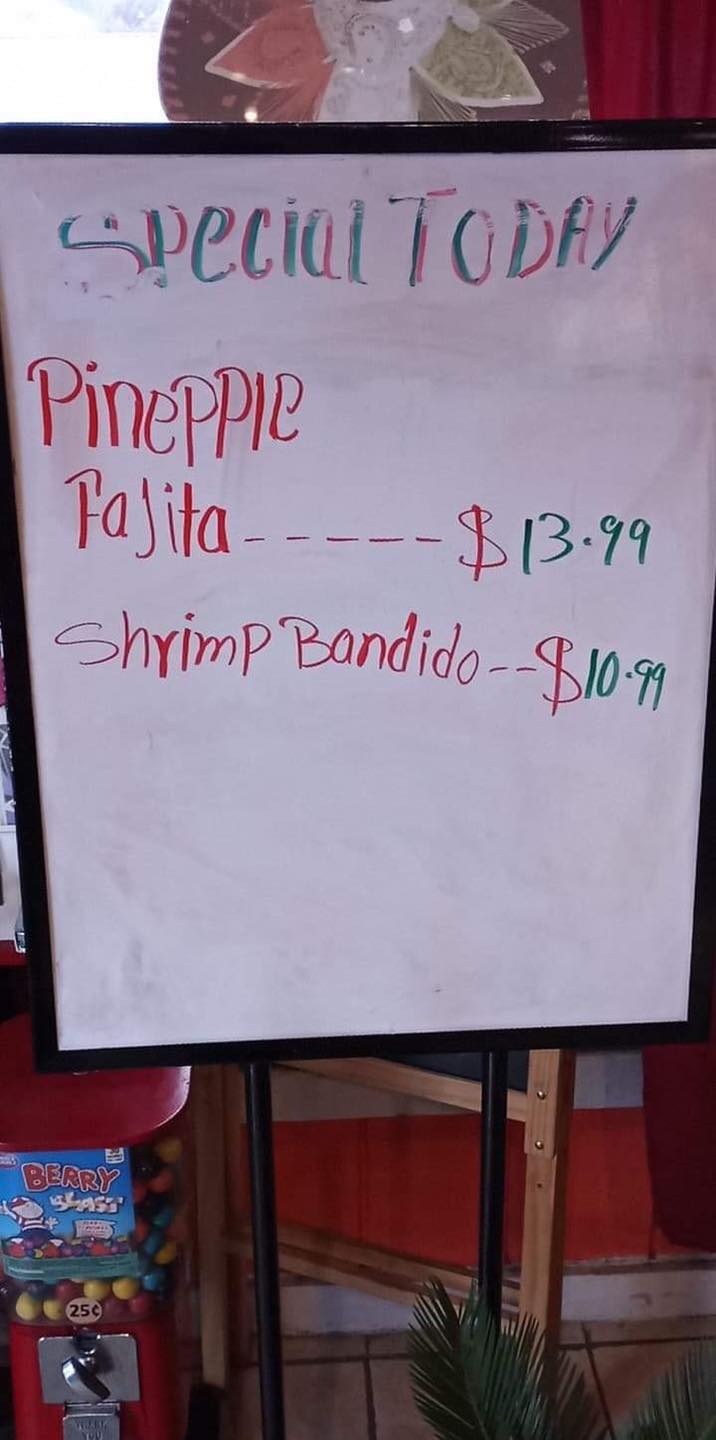 Special TODAY
Pinepple
Fajita ------ $13.99
Shrimp Bandido -- $10.99
BERRY
BLAST
25¢